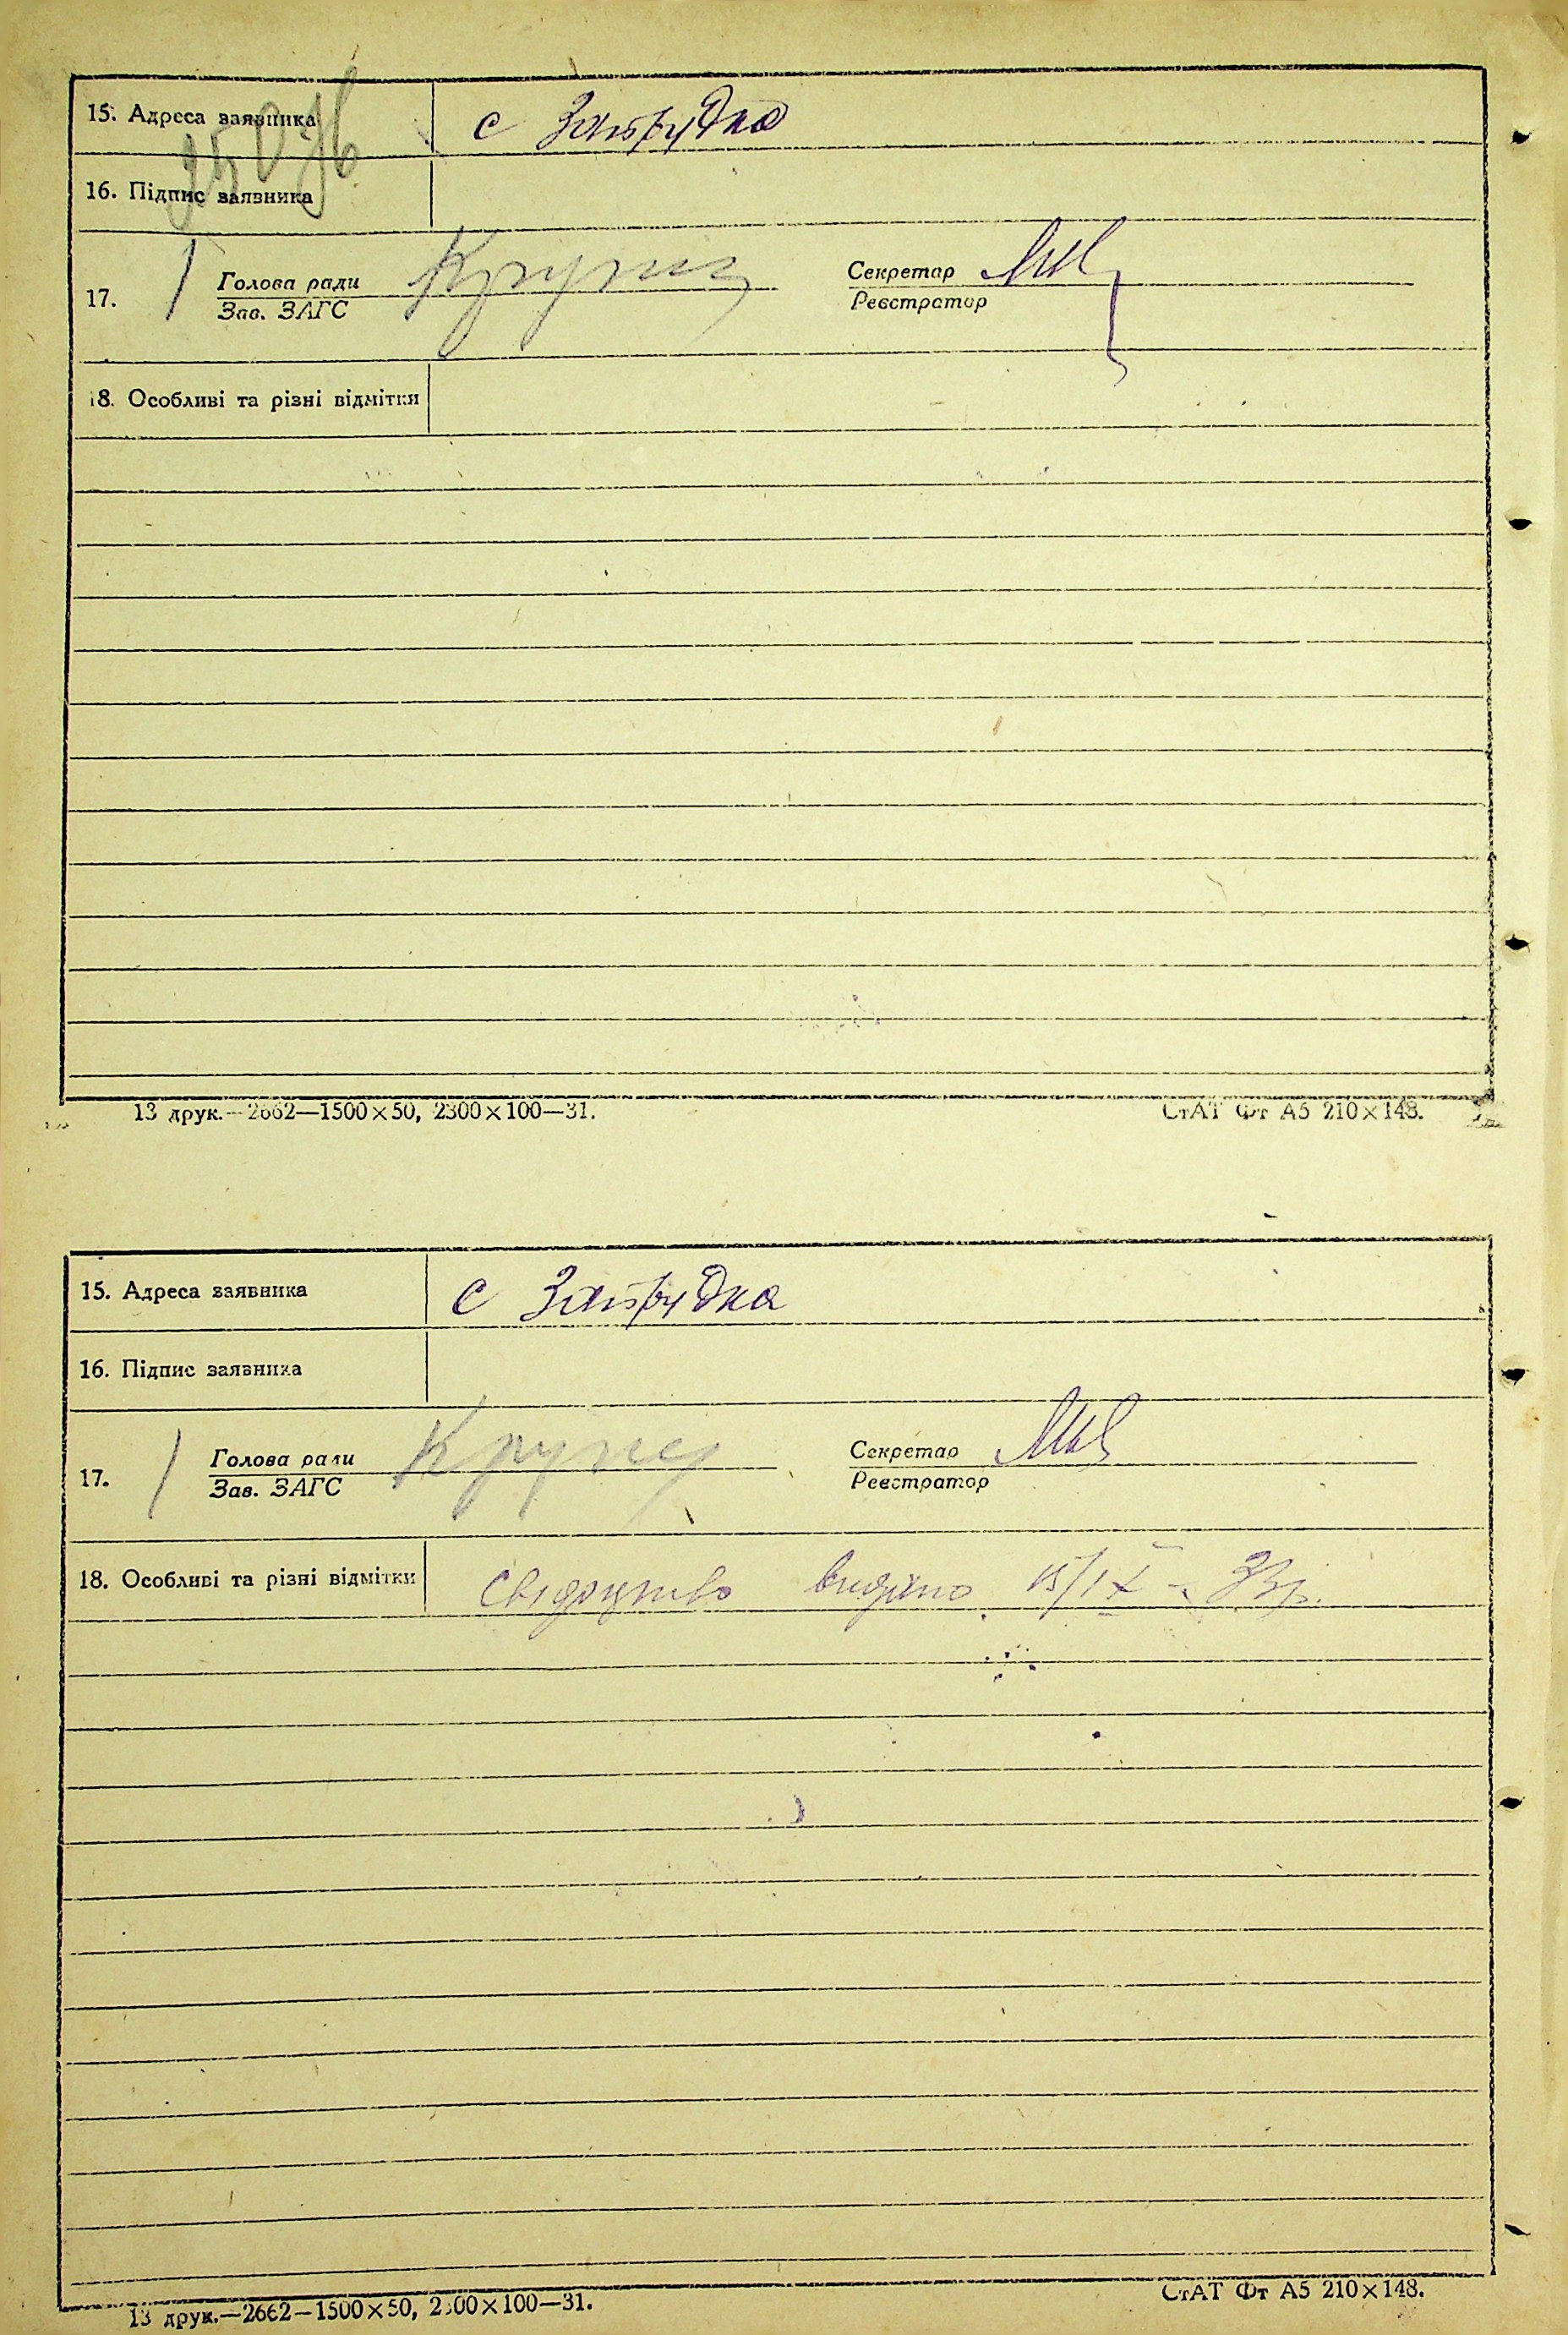 15. Адреса заявника с Займудка
16. Підпис заявника
17. Голова ради Секретар
Зав. ЗАГС Реєстратор
18. Особливі та різні відмітки
13 друк.—2662—1500×50, 2300×100—31. СтАТ Фт А5 210×148.
15. Адреса заявника с
16. Підпис заявника
17. Голова ради Секретар
Зав. ЗАГС Реєстратор
18. Особливі та різні відмітки свідоцтво видано 15/IX - 33р.
13 друк.—2662—1500×50, 2300×100—31. СтАТ Фт А5 210×148.